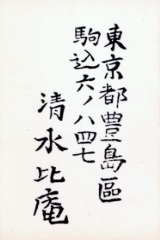 東京都豊島區
駒込六ノ八四七
清水比庵